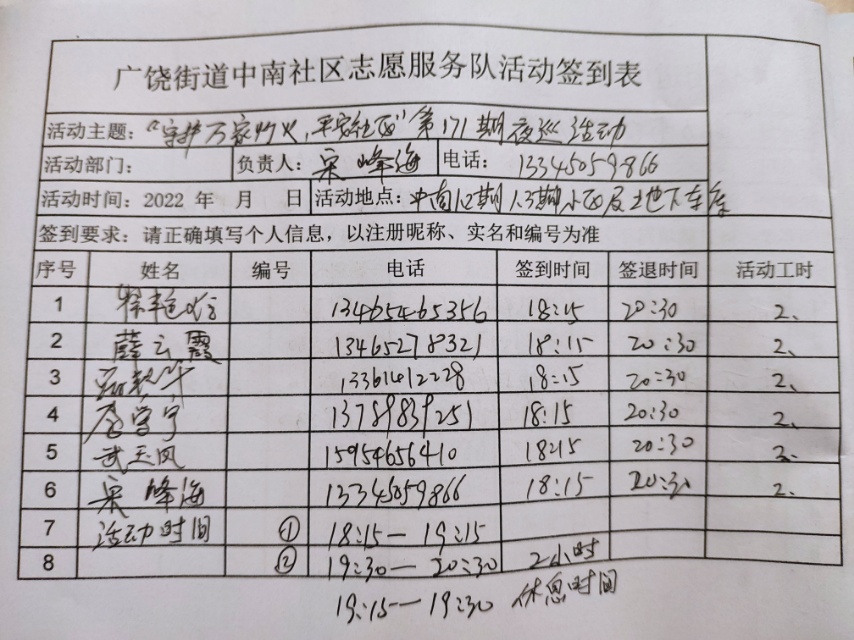 广饶街道中南社区志愿服务队活动签到表
活动主题：“守护万家灯火，平安社区”第171期夜巡活动
活动部门： 负责人：宋峰海 电话：13345059866
活动时间：2022 年 月 日 活动地点：中南1.2期 1.3期小区及地下车库
签到要求：请正确填写个人信息，以注册昵称、实名和编号为准
序号 姓名 编号 电话 签到时间 签退时间 活动工时
1 13465465356 18:15 20:30 2、
2 薛云霞 13465278321 18:15 20:30 2、
3 13361412228 18:15 20:30 2、
4 13789839251 18:15 20:30 2、
5 武玉凤 15954656410 18:15 20:30 2、
6 宋峰海 13345059866 18:15 20:30 2、
7 活动时间 ① 18:15—19:15
8 ② 19:30—20:30 2小时
19:15—19:30 休息时间